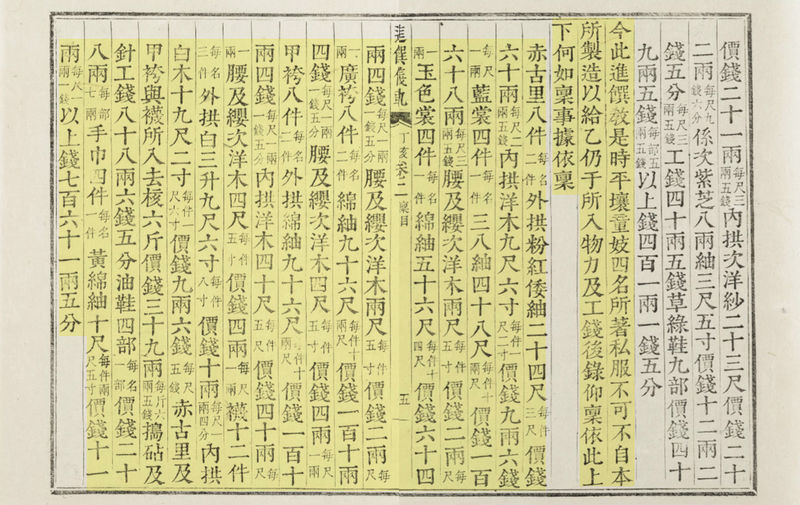 價錢二十一兩每尺三兩五錢內拱次洋紗二十三尺價錢二十
二兩每尺九錢六分係次紫芝八兩紬三尺五寸價錢十二兩二
錢五分每尺三兩五錢工錢四十兩五錢草綠鞋九部價錢四十
九兩五錢每部五兩五錢以上錢四百一兩一錢五分
今此進饌敎是時平壤童妓四名所著私服不可不自本
所製造以給乙仍于所入物力及工錢後錄仰稟依此上
下何如稟事據依稟
赤古里八件每名二件外拱粉紅倭紬二十四尺每件三尺價錢
六十兩每尺二兩五錢內拱洋木九尺六寸每件一尺二寸價錢九兩六錢
每尺一兩藍裳四件每名一件三八紬四十八尺每件十兩尺價錢一百
六十八兩每尺三兩五錢腰次洋木兩尺每件五寸價錢二兩每尺
一兩玉色裳四件每名一件綿紬五十六尺每件十四尺價錢六十四
進饌儀軌 丁亥 卷二 稟目 五
兩四錢每尺一兩一錢五分腰及纓次洋木兩尺每件五寸價錢二兩每尺
一兩廣袴八件每名二件綿紬九十六尺每件十兩尺價錢一百十兩
四錢每尺一兩一錢五分腰及纓次洋木四尺每件五寸價錢四兩每尺一兩
甲袴八件每名二件外拱綿紬九十六尺每件十兩尺價錢一百十
兩四錢每尺一兩一錢五分內拱洋木四十尺每件五尺價錢四十兩每尺
一兩腰及纓次洋木四尺每件五寸價錢四兩每尺一兩襪十二件
每名三件外拱白三升九尺六寸每件八寸價錢十兩每尺一兩四分內拱
白木十九尺二寸每件一尺六寸價錢九兩六錢每尺五錢赤古里及
甲袴與襪所入去核六斤價錢三十九兩每斤六兩五錢搗砧及
針工錢八十八兩六錢五分油鞋四部每名一部價錢二十
八兩每部七兩手巾四件每名一件黃綿紬十尺每件兩尺五寸價錢十一
兩每尺一兩一錢以上錢七百六十一兩五分